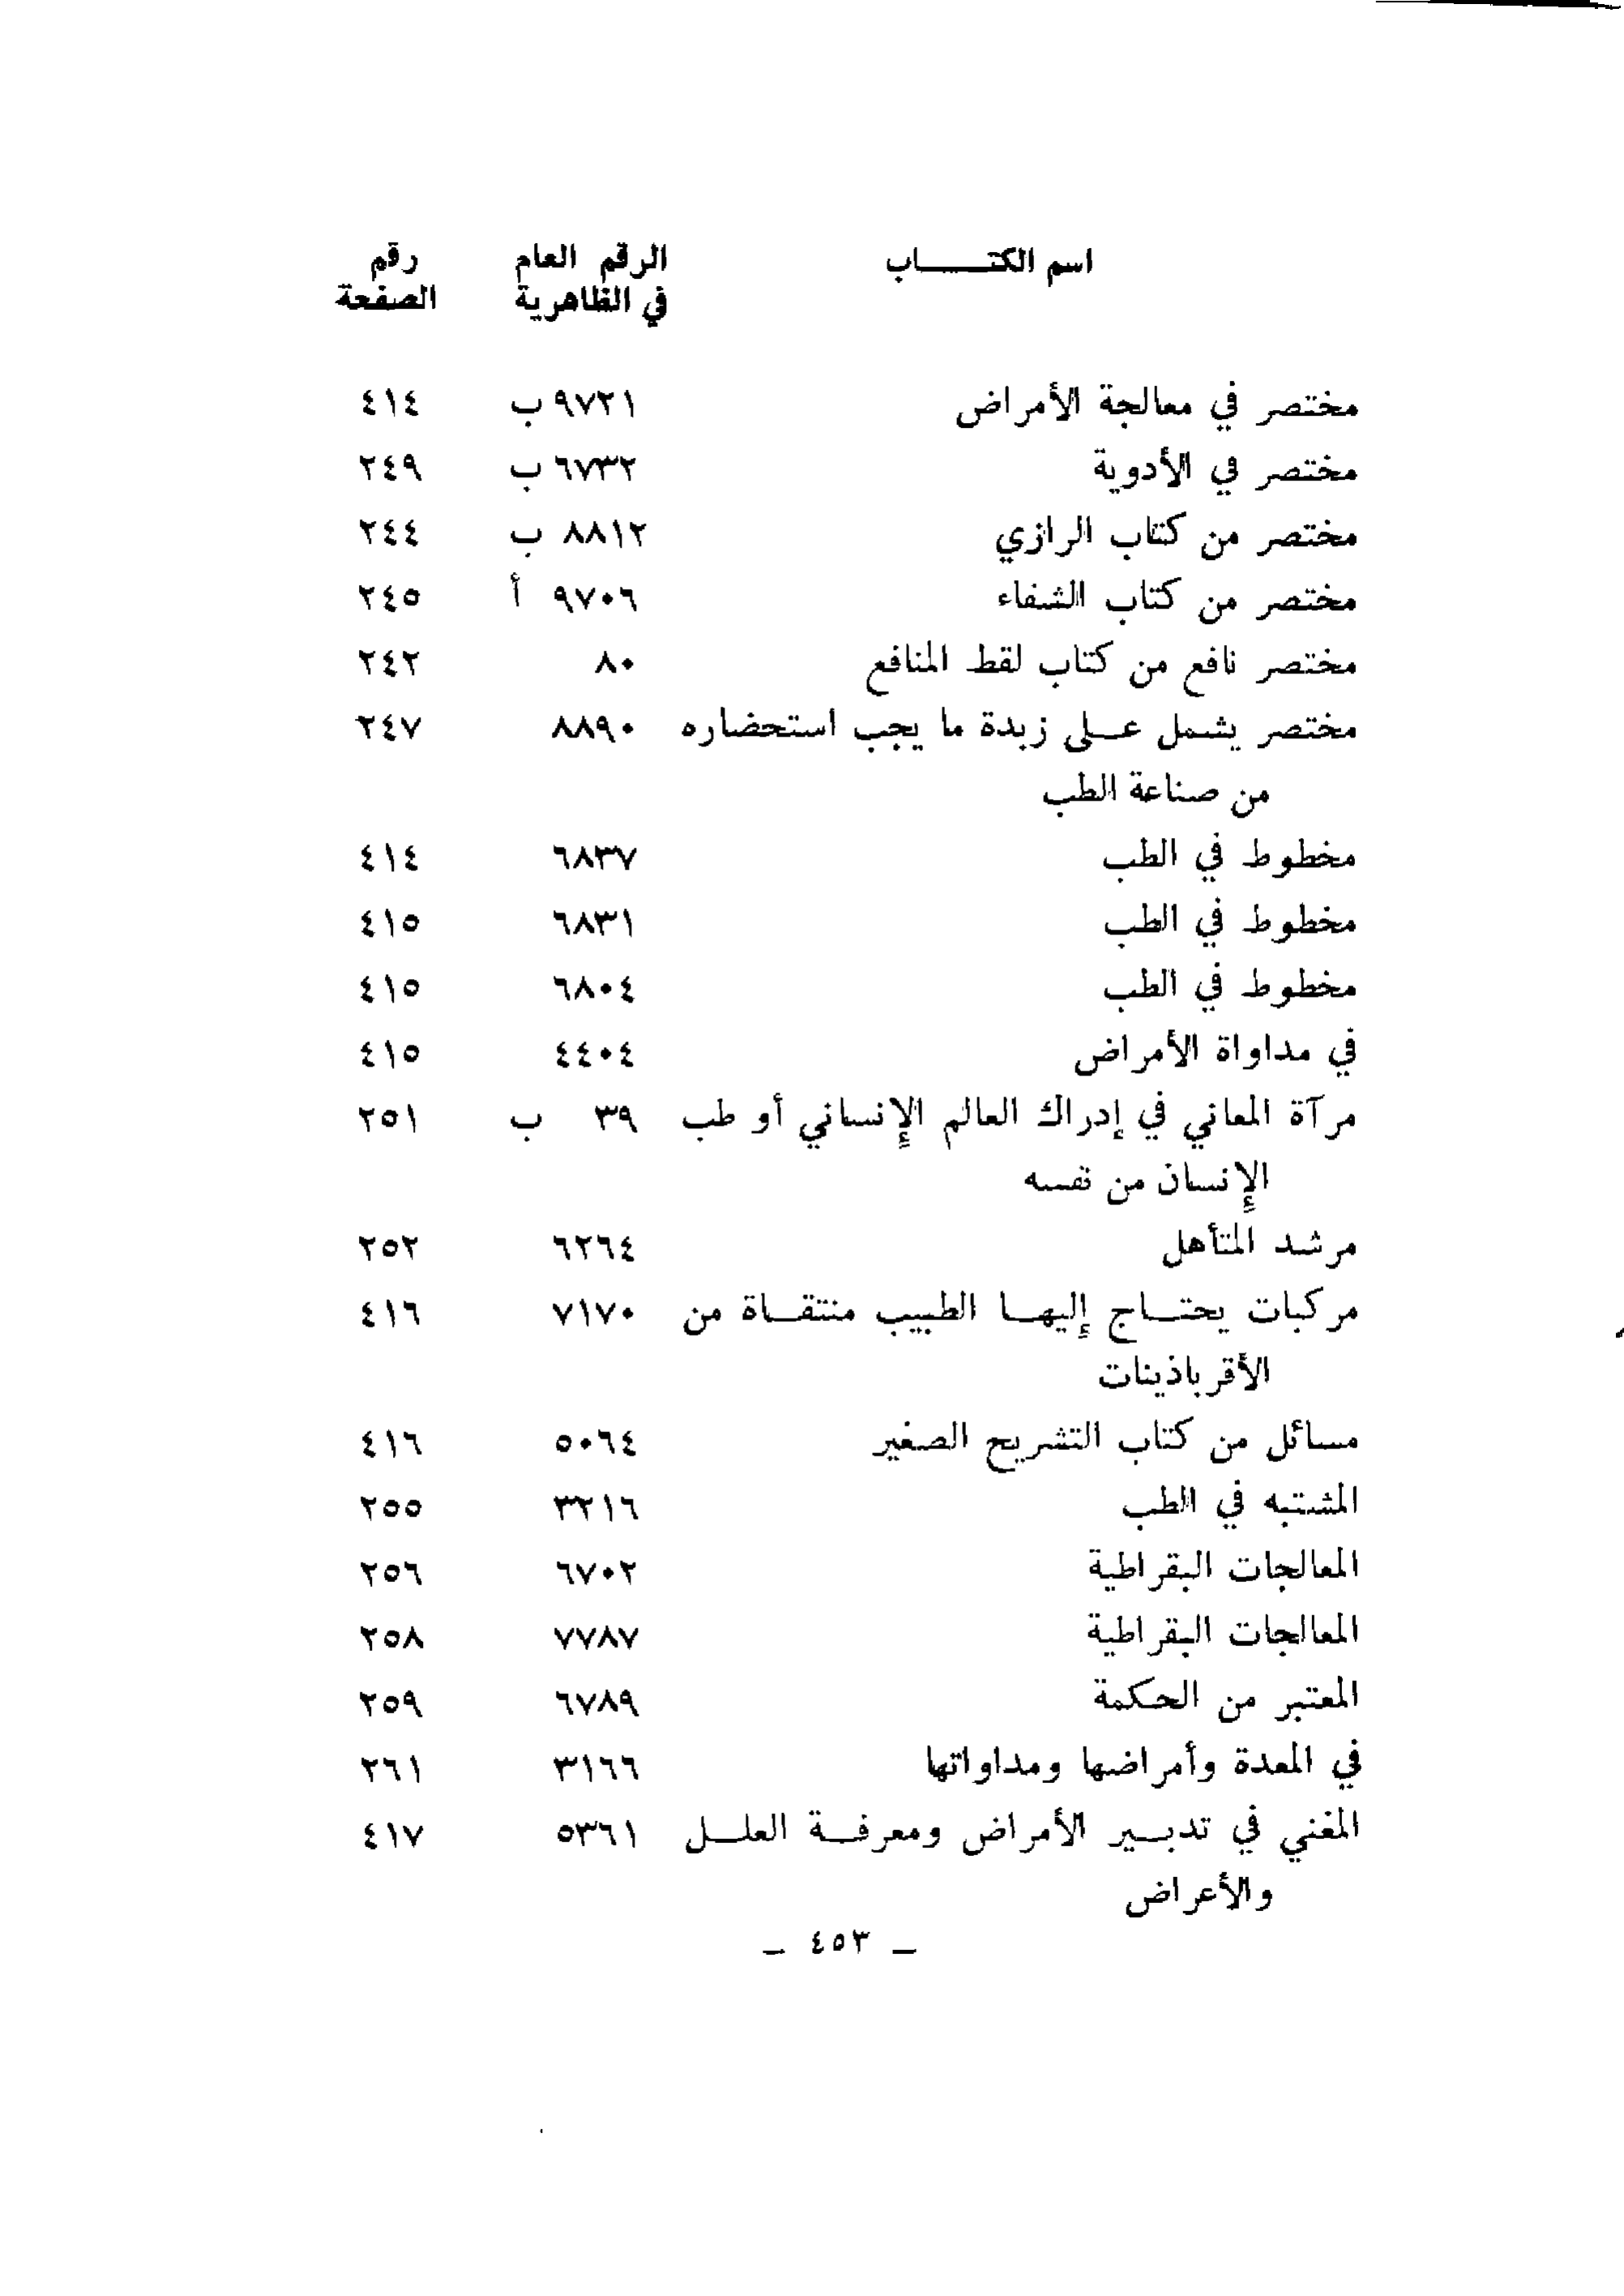 اسم الكتـــــاب الرقم العام رقم
في الظاهرية الصفحة
مختصر في معالجة الأمراض ٩٧٢١ ب ٤١٤
مختصر في الأدوية ٦٧٣٢ ب ٢٤٩
مختصر من كتاب الرازي ٨٨١٢ ب ٢٤٤
مختصر من كتاب الشفاء ٩٧٠٦ أ ٢٤٥
مختصر نافع من كتاب لقط المنافع ٨٠ ٢٤٢
مختصر يشمل عـلى زبدة ما يجب استحضاره ٨٨٩٠ ٢٤٧
من صناعة الطب
مخطوط في الطب ٦٨٣٧ ٤١٤
مخطوط في الطب ٦٨٣١ ٤١٥
مخطوط في الطب ٦٨٠٤ ٤١٥
في مداواة الأمراض ٤٤٠٤ ٤١٥
مرآة المعاني في إدراك العالم الإنساني أو طب ٣٩ ب ٢٥١
الإنسان من نفسه
مرشد المتأهل ٦٢٦٤ ٢٥٢
مركبات يحتـاج إليهـا الطبيب منتقـاة من ٧١٧٠ ٤١٦
الأقرباذينات
مسائل من كتاب التشريح الصغير ٥٠٦٤ ٤١٦
المشتبه في الطب ٣٢١٦ ٢٥٥
المعالجات البقراطية ٦٧٠٢ ٢٥٦
المعالجات البقراطية ٧٧٨٧ ٢٥٨
المعتبر من الحكمة ٦٧٨٩ ٢٥٩
في المعدة وأمراضها ومداواتها ٣١٦٦ ٢٦١
المغني في تدبـير الأمراض ومعرفـة العلـل ٥٣٦١ ٤١٧
والأعراض
ـ ٤٥٣ ـ